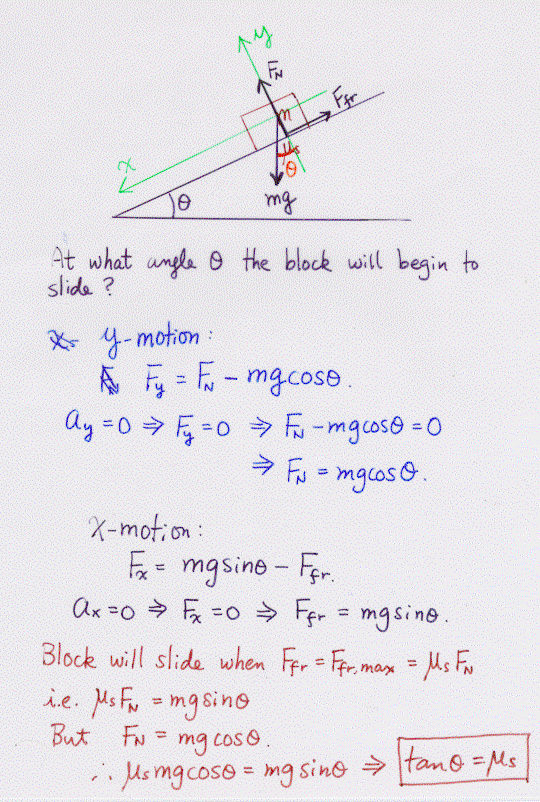 y
F_N
F_fr
m
μ_s
x
θ
θ
mg
At what angle θ the block will begin to
slide ?
y-motion :
F_y = F_N - mgcosθ.
a_y = 0 ⇒ F_y = 0 ⇒ F_N - mgcosθ = 0
⇒ F_N = mgcosθ.
x-motion :
F_x = mgsinθ - F_fr.
a_x = 0 ⇒ F_x = 0 ⇒ F_fr = mgsinθ.
Block will slide when F_fr = F_fr,max = μ_s F_N
i.e. μ_s F_N = mgsinθ
But F_N = mgcosθ.
∴ μ_s mgcosθ = mgsinθ ⇒ tanθ = μ_s